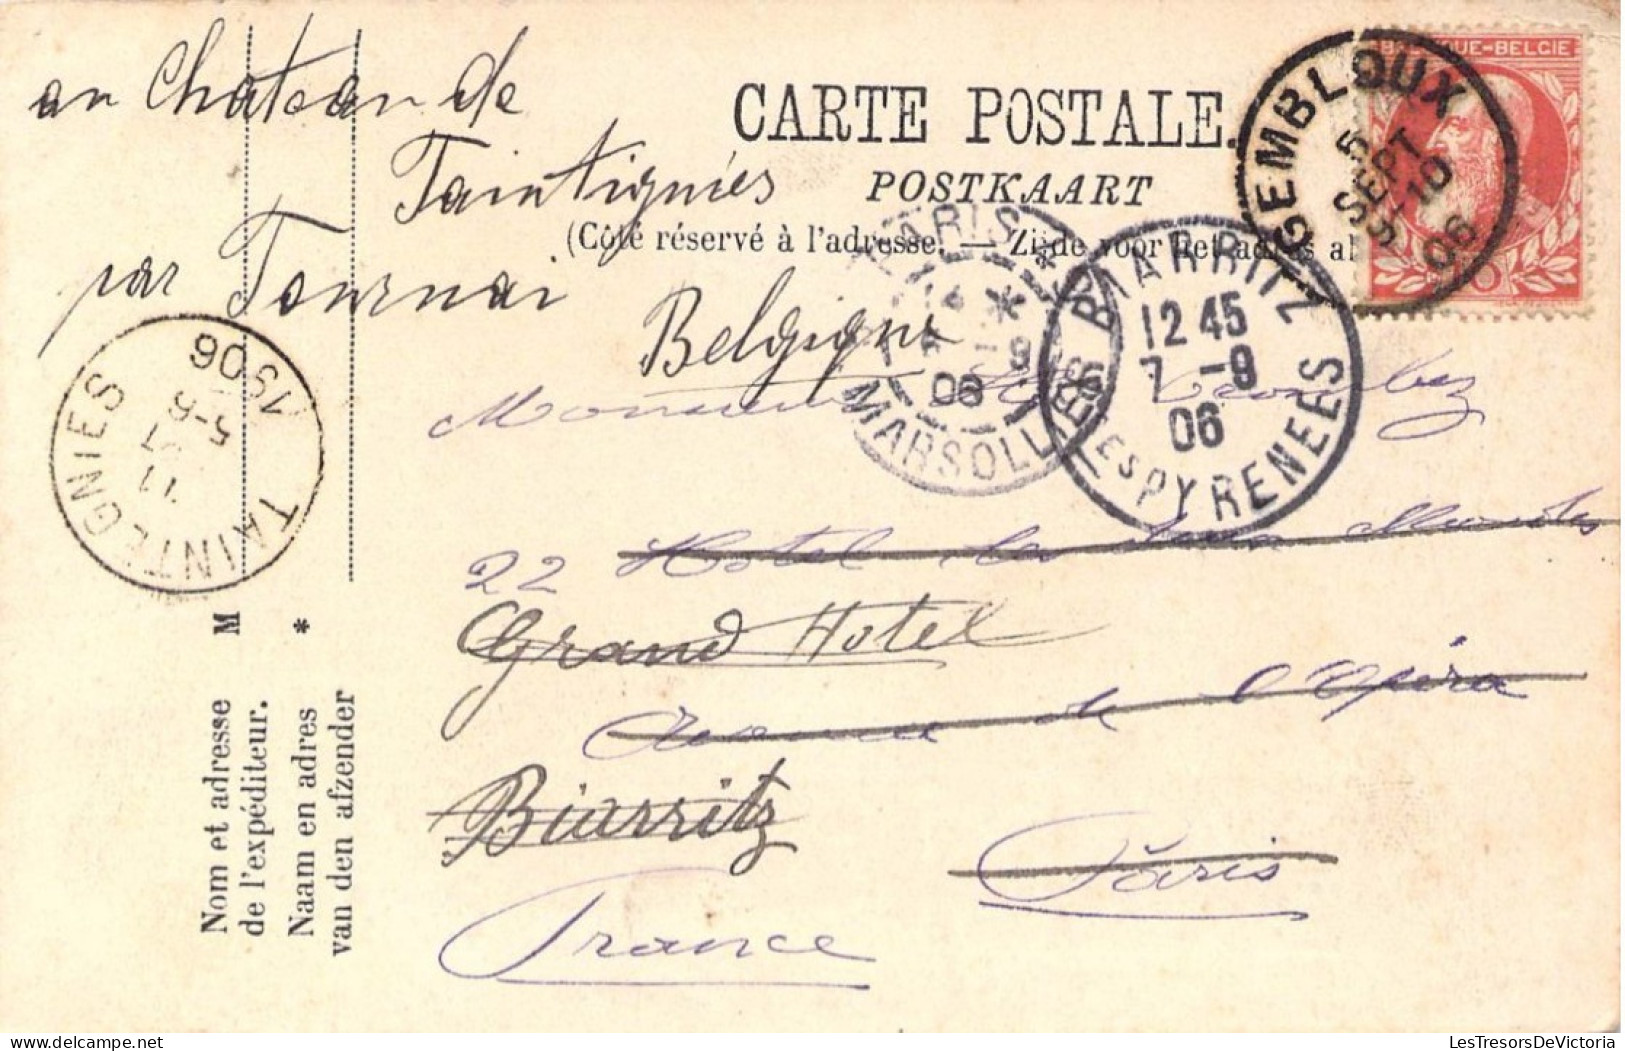 au Chateau de
Taintignies
par Tournai
Belgique
CARTE POSTALE.
POSTKAART
(Côté réservé à l'adresse. — Zijde voor het adres al
BELGIQUE-BELGIE
GEMBLOUX
5
SEPT
9-10
06
PARIS
* 
-9
06
MARSOLLIER
BIARRITZ
12 45
7 -9
06
BSES PYRENEES
TAINTEGNIES
11
5-6
1906
Monsieur
22 Hotel des deux Mondes
Grand Hotel
Avenue de l'Opéra
Biarritz
Paris
France
M
*
Nom et adresse
de l'expéditeur.
Naam en adres
van den afzender
LesTresorsDeVictoria.com